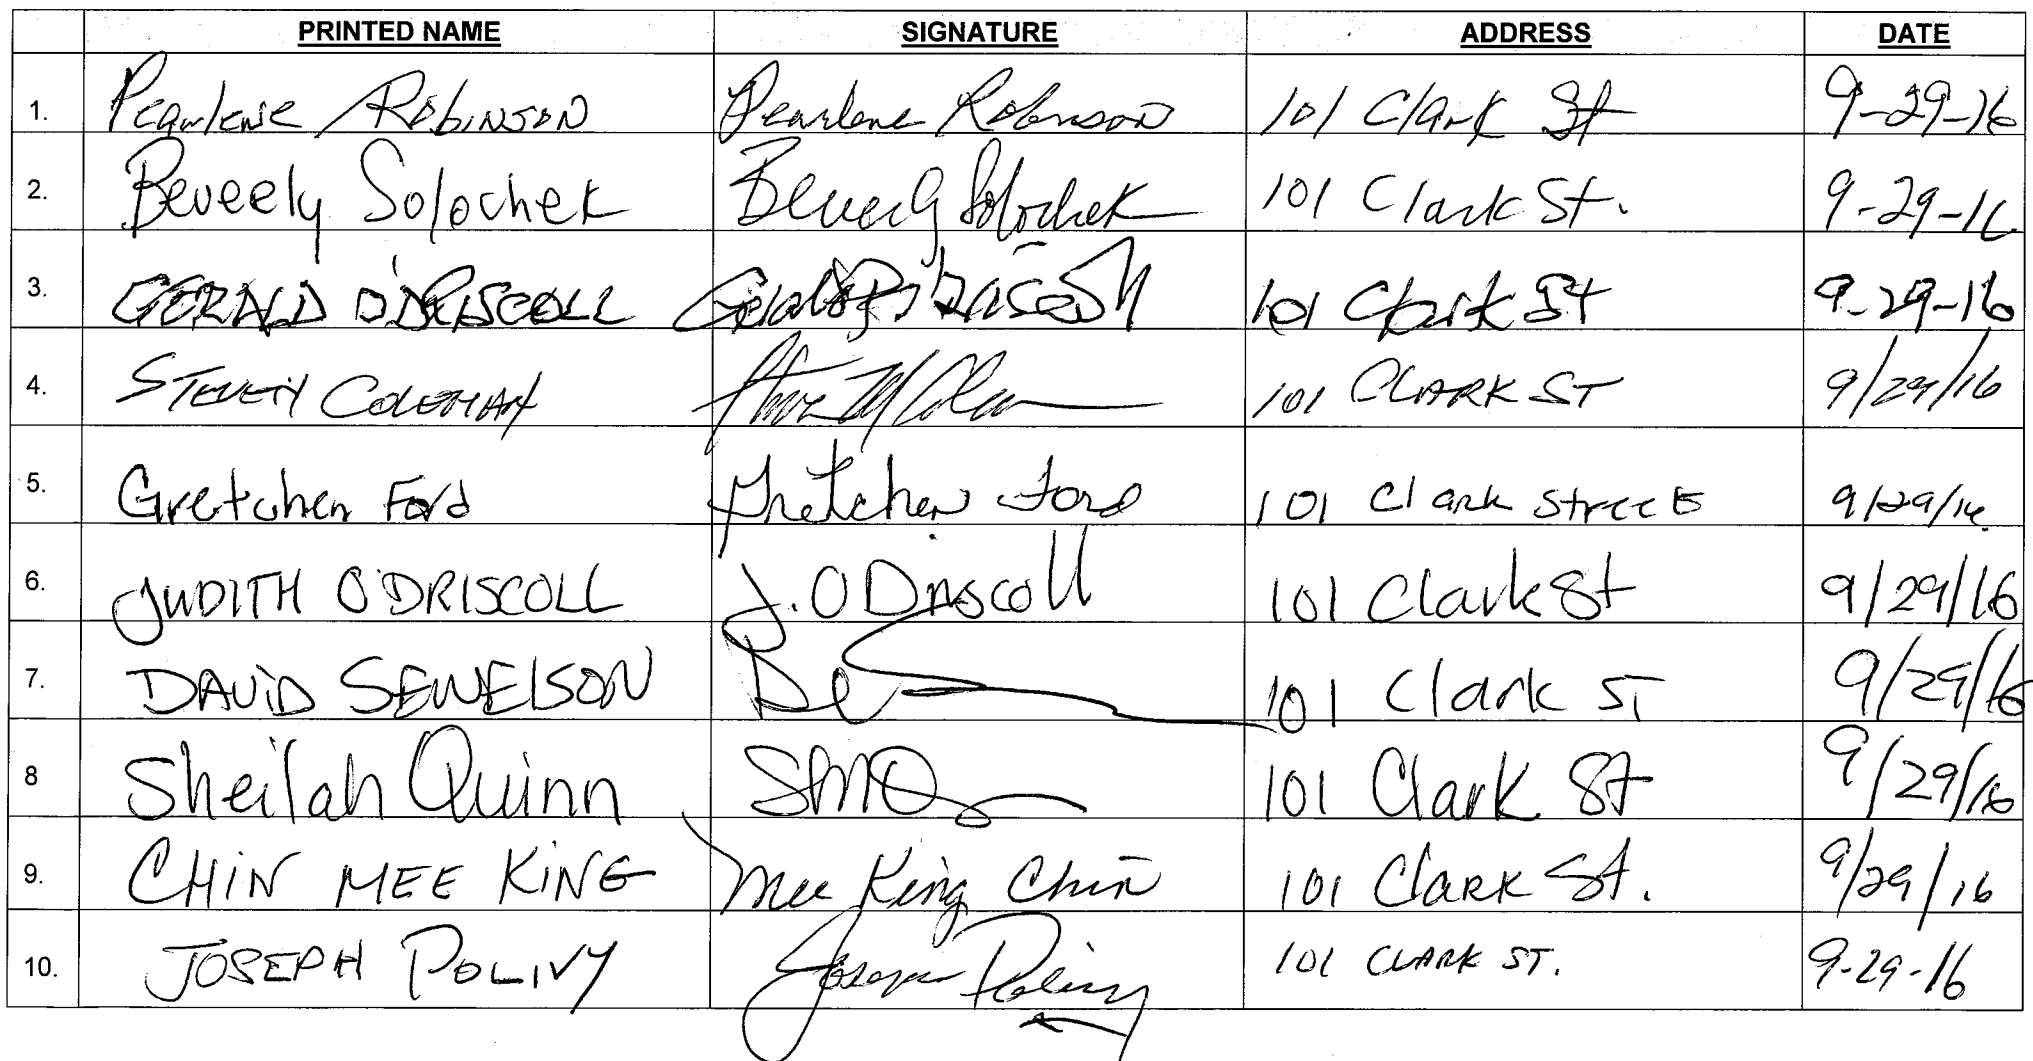 PRINTED NAME SIGNATURE ADDRESS DATE
1. Pearlene Robinson Pearlene Robinson 101 Clark St 9-29-16
2. Beverly Solochek Beverly Solochek 101 Clark St. 9-29-16
3. GERALD O'DRISCOLL 101 Clark St 9-29-16
4. STEVEN COLEMAN 101 CLARK ST 9/29/16
5. Gretchen Ford Gretchen Ford 101 Clark Street 9/29/16
6. JUDITH O'DRISCOLL J. O Driscoll 101 Clark St 9/29/16
7. DAVID SEWELSON 101 Clark ST 9/29/16
8 Sheilah Quinn SMQ 101 Clark St 9/29/16
9. CHIN MEE KING Mee King Chin 101 Clark St. 9/29/16
10. JOSEPH POLIVY Joseph Polivy 101 CLARK ST. 9-29-16